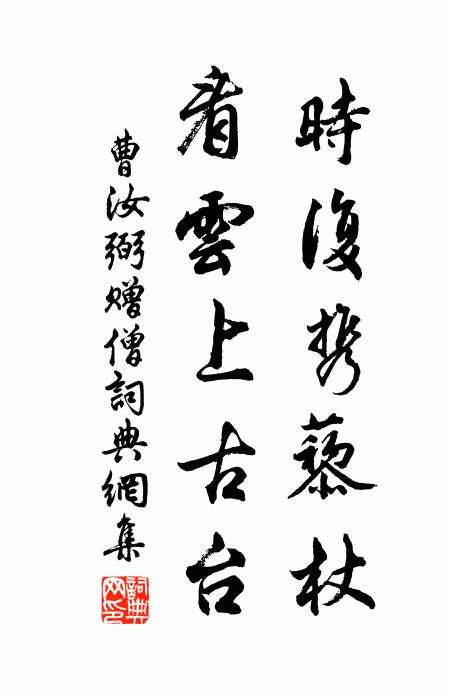 時復携藜杖
看雲上古台
曹汝弼贈僧詞典網集
詞典網印